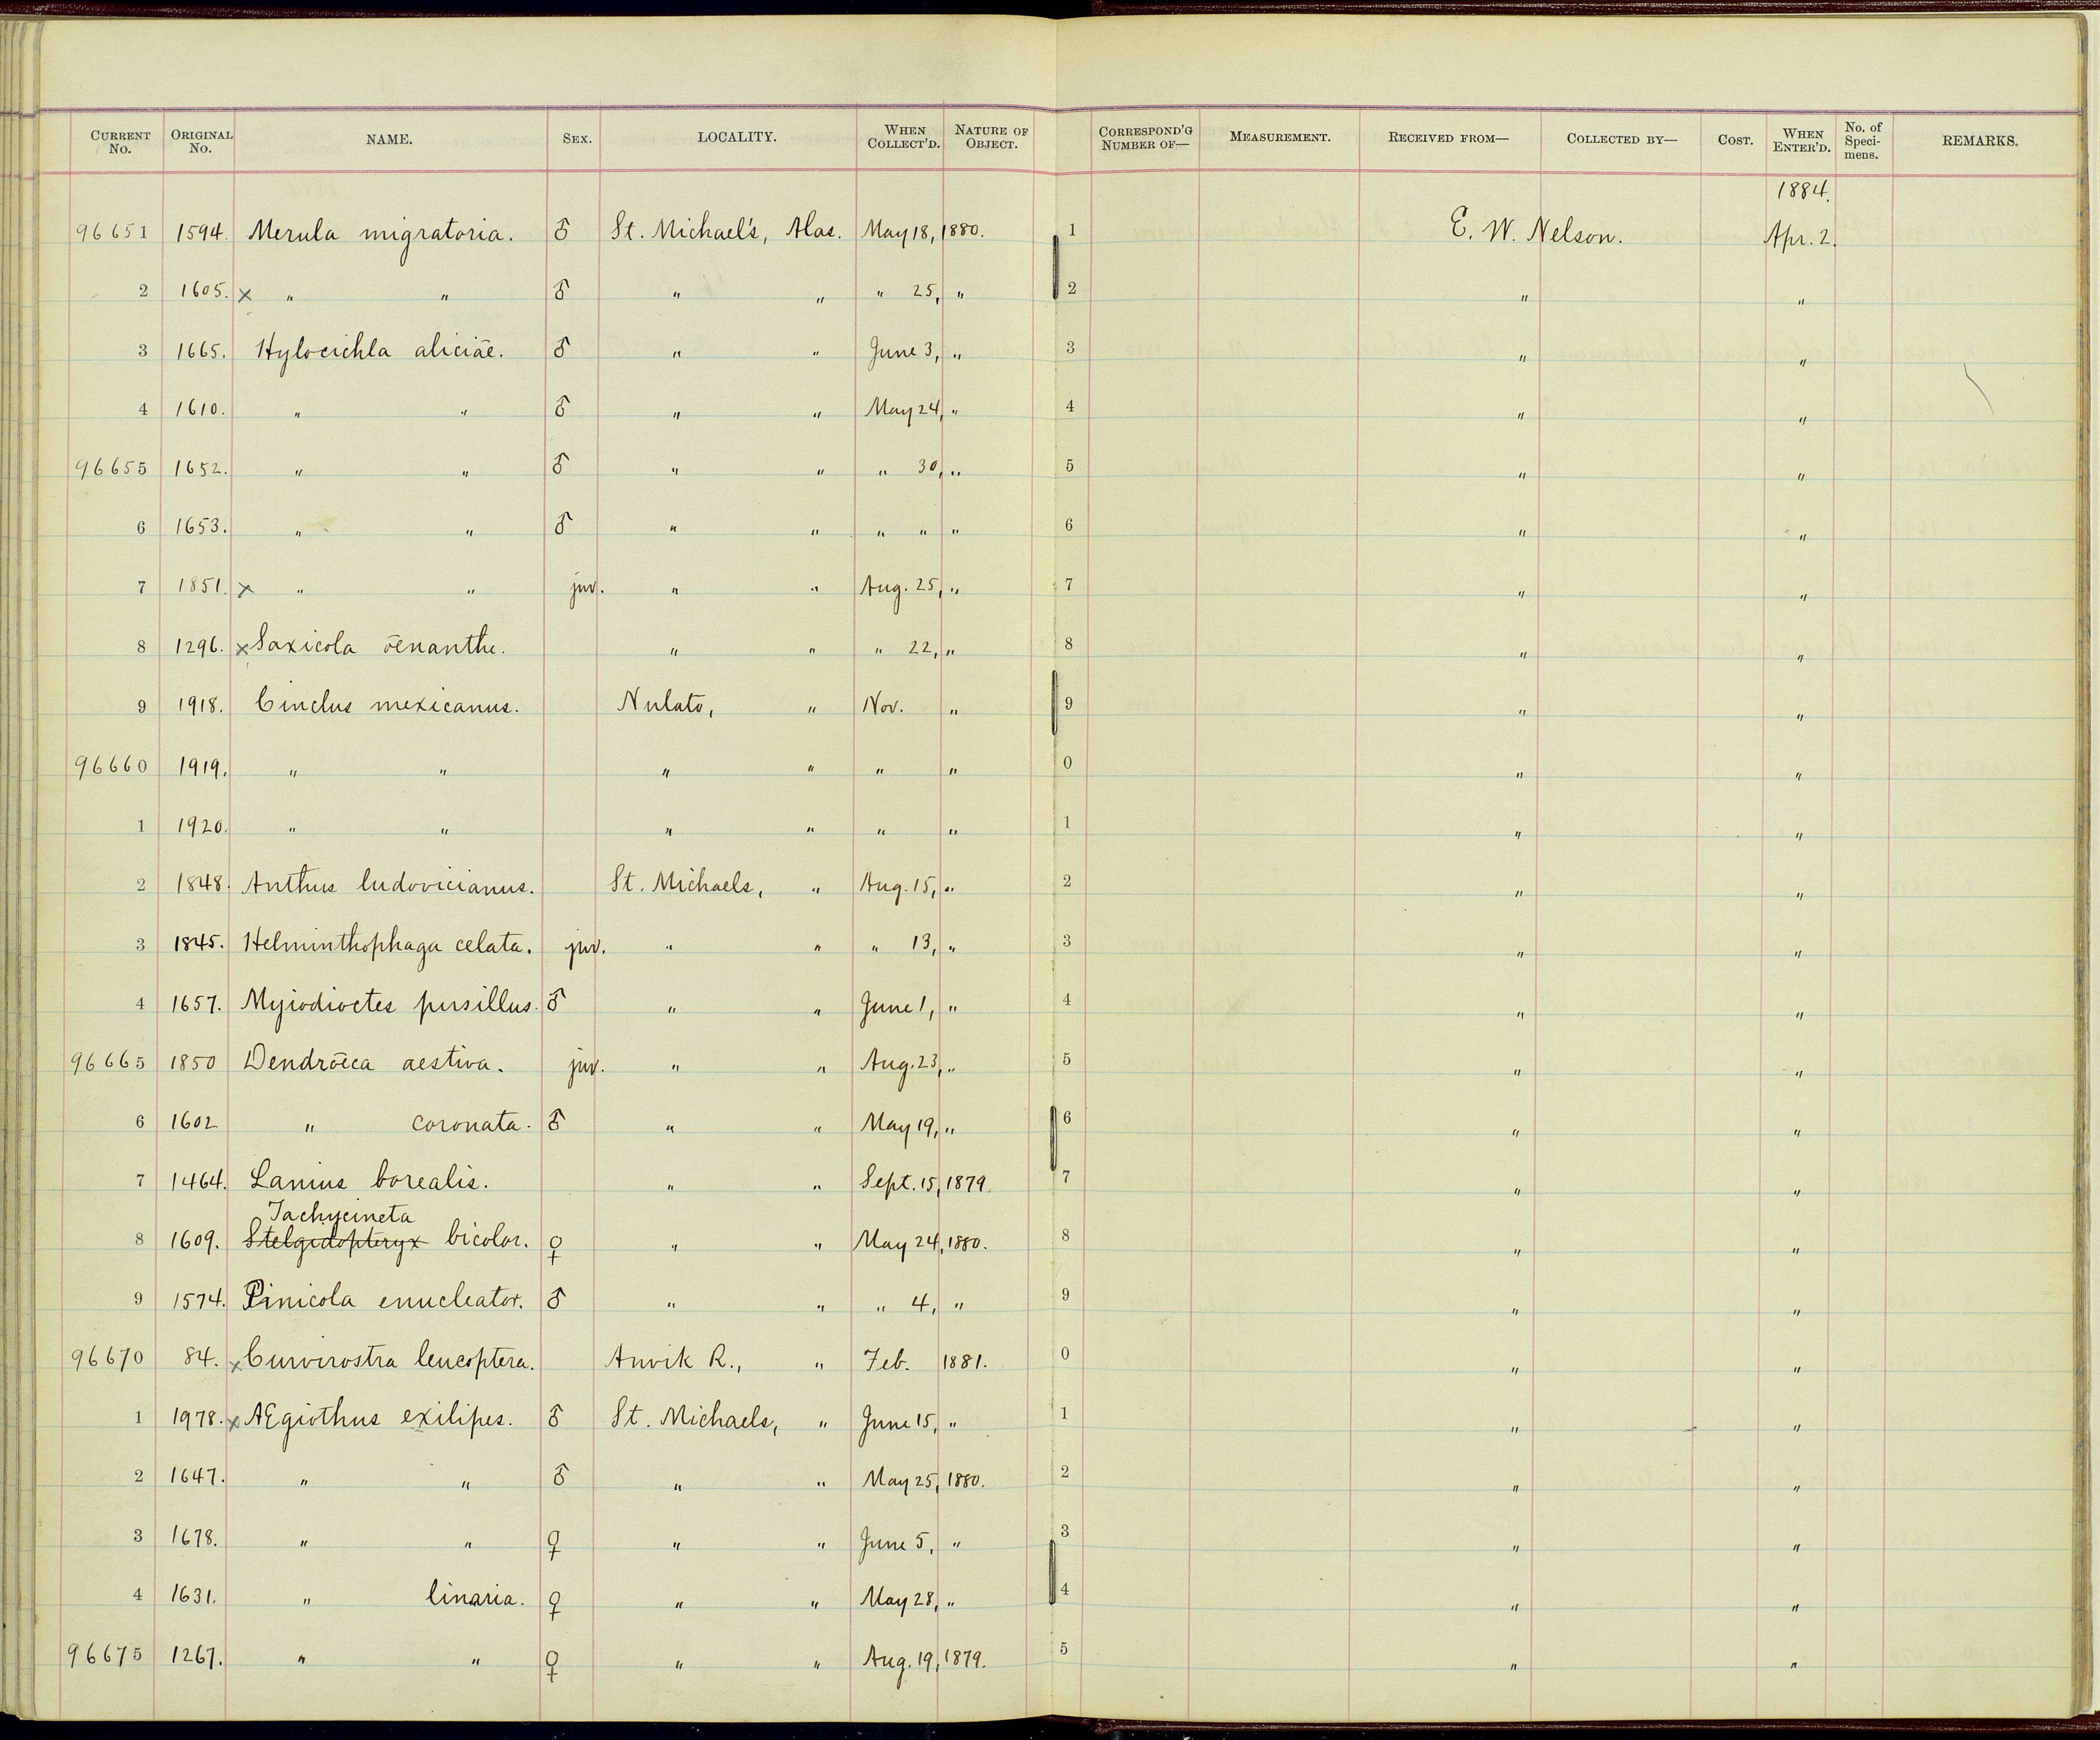 CURRENT No. ORIGINAL No. NAME. SEX. LOCALITY. WHEN COLLECT'D. NATURE OF OBJECT. CORRESPOND'G NUMBER OF— MEASUREMENT. RECEIVED FROM— COLLECTED BY— COST. WHEN ENTER'D. No. of Specimens. REMARKS.
1884.
96651 1594. Merula migratoria. ♂ St. Michael's, Alas. May 18, 1880. 1 E. W. Nelson. Apr. 2.
2 1605. x " " ♂ " " " 25, " 2 " "
3 1665. Hylocichla aliciae. ♂ " " June 3, " 3 " "
4 1610. " " ♂ " " May 24, " 4 " "
96655 1652. " " ♂ " " " 30, " 5 " "
6 1653. " " ♂ " " " " " 6 " "
7 1851. x " " juv. " " Aug. 25, " 7 " "
8 1296. x Saxicola oenanthe. " " " 22, " 8 " "
9 1918. Cinclus mexicanus. Nulato, " Nov. " 9 " "
96660 1919. " " " " " " 0 " "
1 1920. " " " " " " 1 " "
2 1848. Anthus ludovicianus. St. Michaels, " Aug. 15, " 2 " "
3 1845. Helminthophaga celata. juv. " " " 13, " 3 " "
4 1657. Myiodioctes pusillus. ♂ " " June 1, " 4 " "
96665 1850 Dendroeca aestiva. juv. " " Aug. 23, " 5 " "
6 1602 " coronata. ♂ " " May 19, " 6 " "
7 1464. Lanius borealis. " " Sept. 15, 1879. 7 " "
Tachycineta
8 1609. Stelgidopteryx bicolor. ♀ " " May 24, 1880. 8 " "
9 1574. Pinicola enucleator. ♂ " " " 4, " 9 " "
96670 84. x Curvirostra leucoptera. Anvik R., " Feb. 1881. 0 " "
1 1978. x Ægiothus exilipes. ♂ St. Michaels, " June 15, " 1 " "
2 1647. " " ♂ " " May 25, 1880. 2 " "
3 1678. " " ♀ " " June 5, " 3 " "
4 1631. " linaria. ♀ " " May 28, " 4 " "
96675 1267. " " ♀ " " Aug. 19, 1879. 5 " "